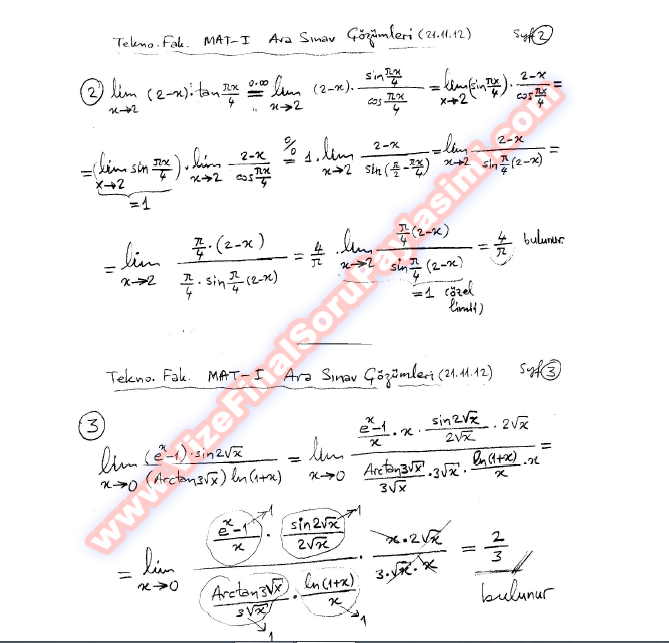 Tekno. Fak. MAT-I Ara Sınav Çözümleri (21.11.12) Syf 2
2) lim_{x→2} (2-x)·tan πx/4 =^{0·∞} lim_{x→2} (2-x)· (sin πx/4)/(cos πx/4) = lim_{x→2} (sin πx/4) · (2-x)/(cos πx/4) =
= (lim_{x→2} sin πx/4) · lim_{x→2} (2-x)/(cos πx/4) =^{0/0} 1 · lim_{x→2} (2-x)/(sin(π/2 - πx/4)) = lim_{x→2} (2-x)/(sin π/4 (2-x)) =
=1
= lim_{x→2} (π/4 · (2-x))/(π/4 · sin π/4 (2-x)) = 4/π · lim_{x→2} (π/4 (2-x))/(sin π/4 (2-x)) = 4/π bulunur
=1 (özel limit)
Tekno. Fak. MAT-I Ara Sınav Çözümleri (21.11.12) Syf 3
3 lim_{x→0} ((e^x-1)·sin2√x)/((Arctan3√x) ln(1+x)) = lim_{x→0} ((e^x-1)/x · x · (sin2√x)/(2√x) · 2√x)/((Arctan3√x)/(3√x) · 3√x · (ln(1+x))/x · x) =
= lim_{x→0} ((e^x-1)/x →1 · (sin2√x)/(2√x) →1)/((Arctan3√x)/(3√x) →1 · (ln(1+x))/x →1) · (x·2√x)/(3·√x·x) = 2/3
bulunur
www.VizeFinalSoruPaylasimi.com